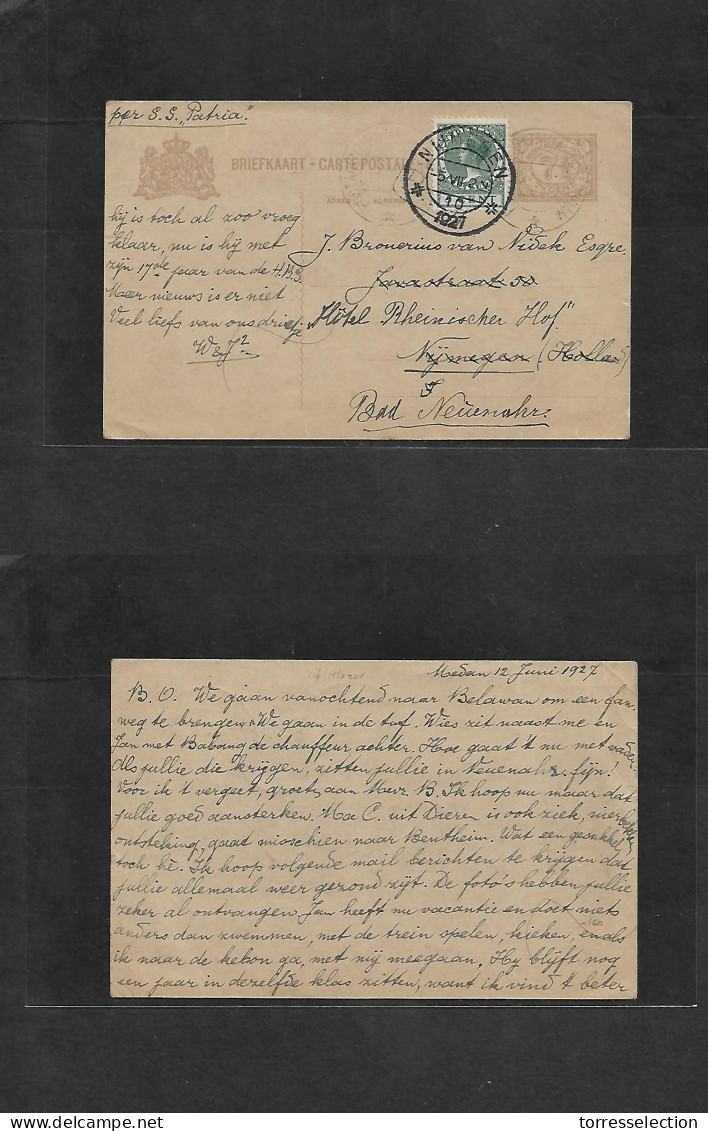 per S.S. „Patria".
BRIEFKAART - CARTE POSTAL
NIJMEGEN
5.VII.2
10
1927
hij is toch al zoo vroeg
klaar, nu is hij met
zijn 17de jaar van de H.B.S.
Meer nieuws is er niet
Veel liefs van ons drietje
W & J2
J. Brouerius van Nidek Esqre.
Javastraat 50
„Hôtel Rheinischer Hof"
Nijmegen (Holland)
Bad Neuenahr.
Medan 12 Juni 1927
B.O. We gaan vanochtend naar Belawan om een fam.
weg te brengen. We gaan in de tuf. Wies zit naast me en
Jan met Babang de chauffeur achter. Hoe gaat 't nu met vader.
Als jullie die krijgen, zitten jullie in Neuenahr. fijn!
Voor ik 't vergeet, groeten aan Mevr. B. Ik hoop nu maar dat
jullie goed aansterken. Ma C. uit Dieren is ook ziek, nierbekken
ontsteking, gaat misschien naar Bentheim. Wat een gesukkel
toch hè. Ik hoop volgende mail berichten te krijgen dat
jullie allemaal weer gezond zijt. De foto's hebben jullie
zeker al ontvangen. Jan heeft nu vacantie en doet niets
anders dan zwemmen, met de trein spelen, kieken en als
ik naar de kebon ga, met mij meegaan. Hy blijft nog
een jaar in dezelfde klas zitten, want ik vind 't beter
torresselection